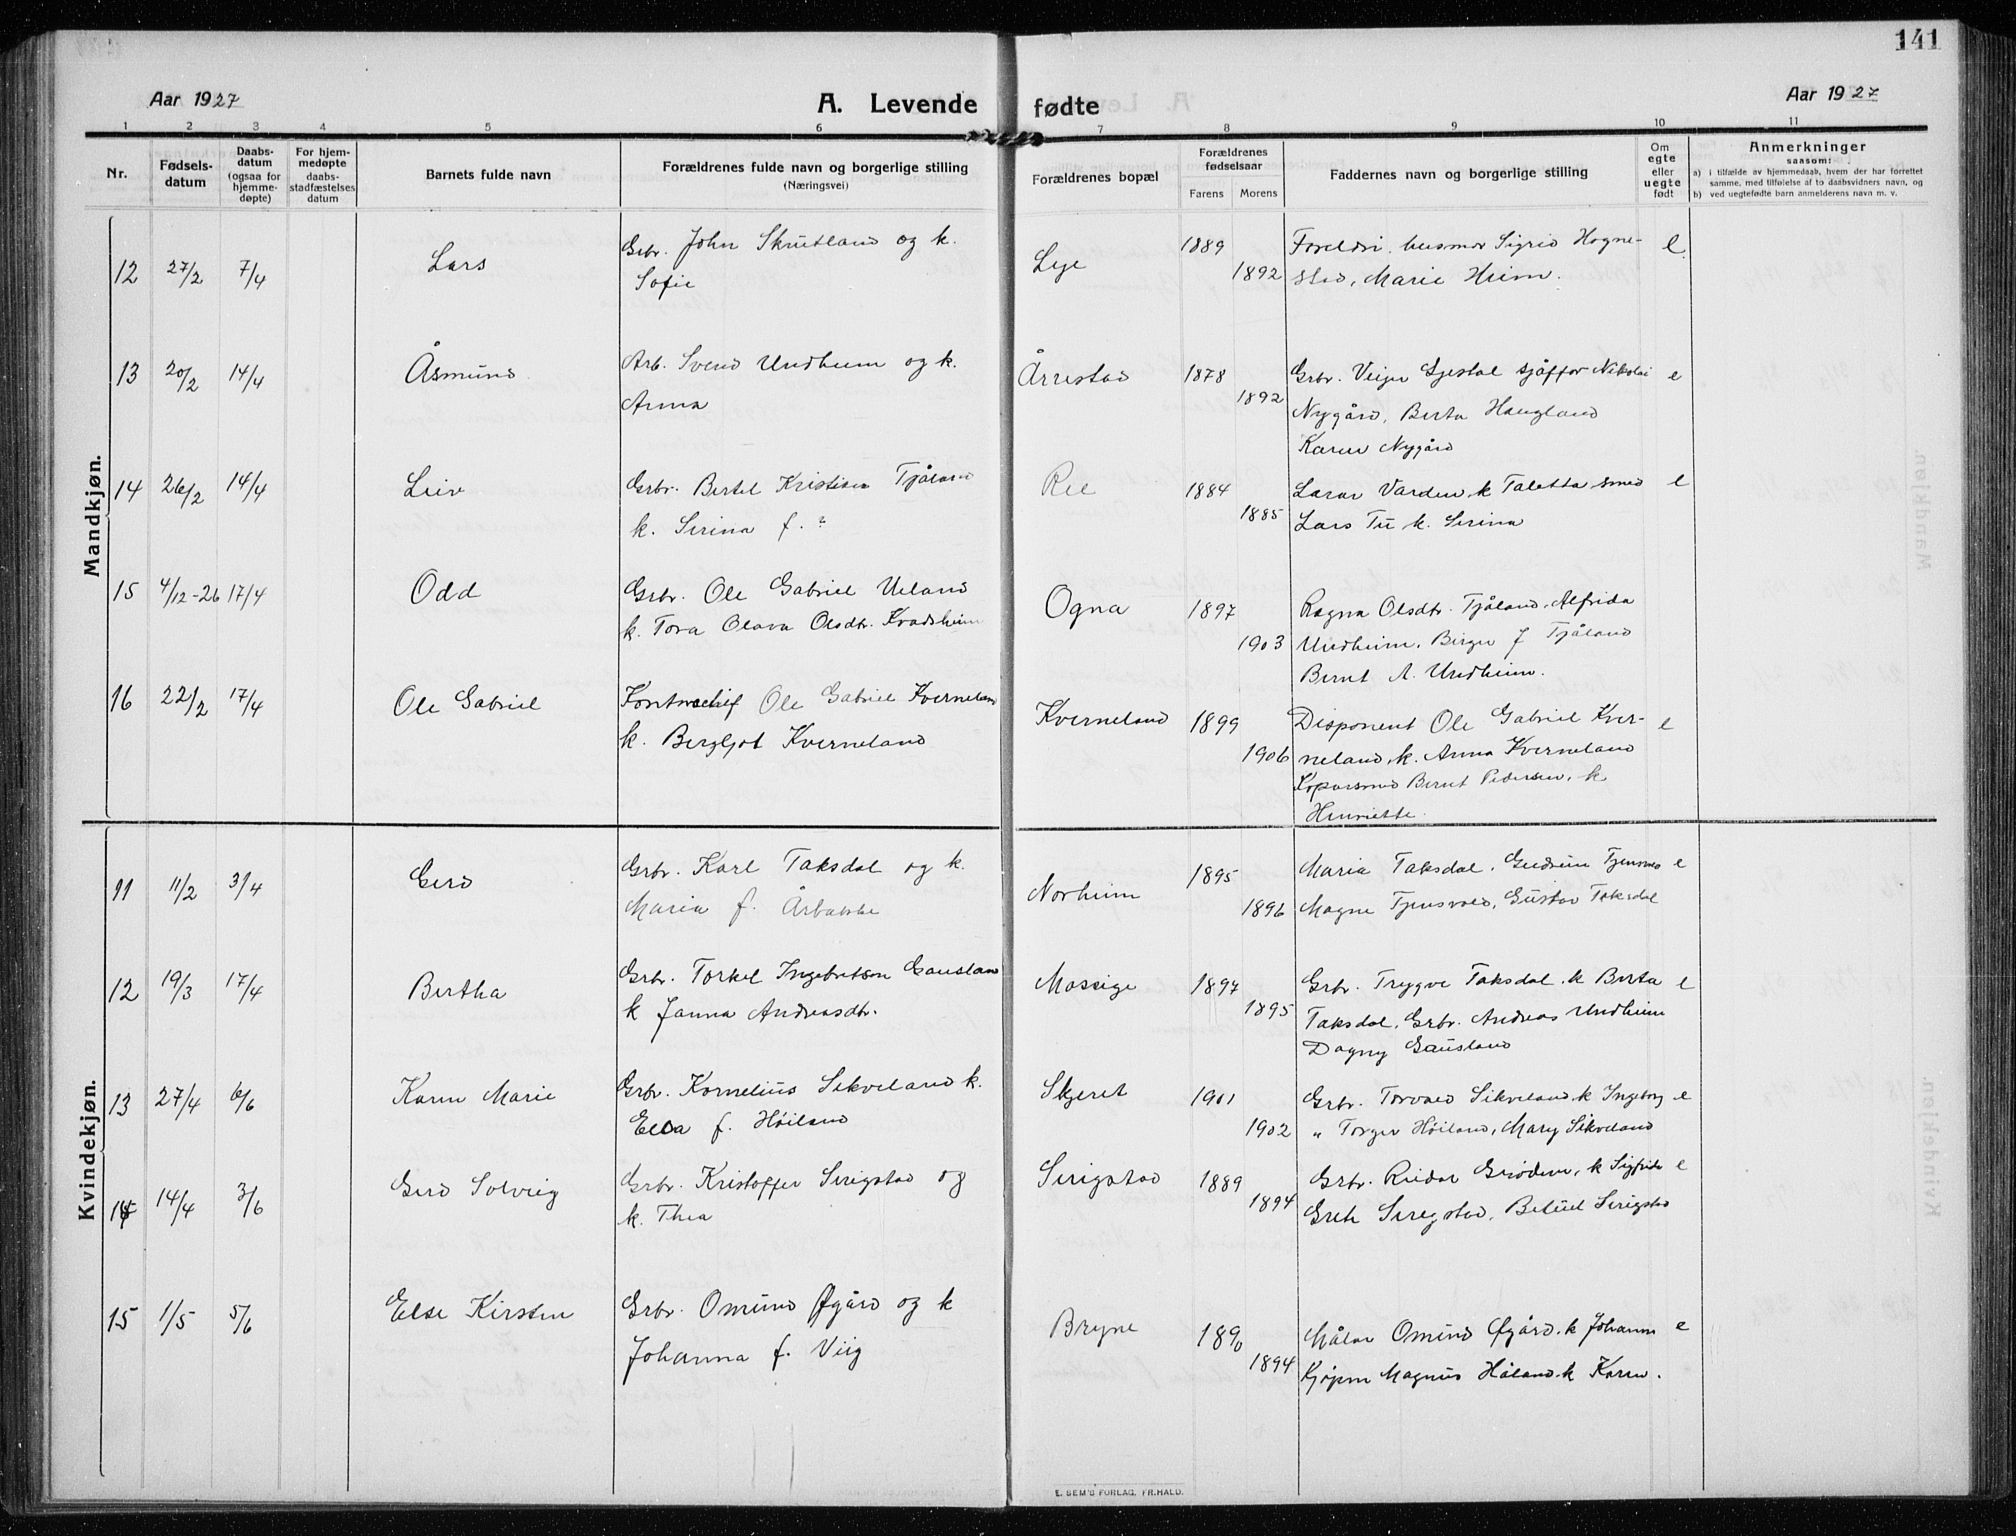 141
Aar 1927
A. Levende fødte
Aar 1927
1 2 3 4 5 6 7 8 9 10 11
Nr.
Fødsels-
datum
Daabs-
datum
(ogsaa for
hjemme-
døpte)
For hjem-
medøpte
daabs-
stadfæstelses
datum
Barnets fulde navn
Forældrenes fulde navn og borgerlige stilling
(Næringsvei)
Forældrenes bopæl
Forældrenes
fødselsaar
Farens Morens
Faddernes navn og borgerlige stilling
Om
egte
eller
uegte
født
Anmerkninger
saasom:
a) i tilfælde av hjemmedaab, hvem der har forrettet
samme, med tilføielse af to daabsvidners navn, og
b) ved uegtefødte barn anmelderens navn m. v.
Mandkjøn.
12 27/2 7/4 Lars Grbr. John Skrutland og k. Lye 1889 Foreldri, husmor Sigrid Hogne- e
Sofie 1892 stad, Marie Heim.
13 20/2 14/4 Åsmund Arb. Svend Undheim og k. Årrestad 1878 Grbr. Veiger Ljestøl sjåffør Nikolai e
Anna 1892 Nygård, Berta Haugland
Karen Nygård
14 26/2 14/4 Leiv Grbr. Bertel Kristian Tjåland Ree 1884 Lærar Varden k Taletta smed e
k. Serina f. ? 1885 Lars Tu k. Serina
15 4/12-26 17/4 Odd Grbr. Ole Gabriel Ueland Ogna 1897 Ragna Olsdtr. Tjåland, Alfrida
k. Tora Olava Olsdtr. Kvadsheim 1903 Undheim, Birger J Tjåland
Bernt A. Undheim.
16 22/2 17/4 Ole Gabriel Kontorchef Ole Gabriel Kverneland Kverneland 1899 Disponent Ole Gabriel Kver- e
k. Bergljot Kverneland 1906 neland, k. Anna Kverneland
Koparsmed Bernt Pedersen, k
Henriette.
Kvindekjøn.
11 11/2 3/4 Gerd Grbr. Karl Taksdal og k. Norheim 1895 Maria Taksdal, Gudrun Tjensvold e
Maria f. Årbakke 1896 Magne Tjensvold, Gustav Taksdal
12 19/3 17/4 Bertha Grbr. Torkel Ingebretsen Gausland Mossige 1897 Grbr. Trygve Taksdal, k Berta e
k Janna Andreasdtr. 1895 Taksdal, Grbr. Andreas Undheim
Dagny Gausland
13 27/4 6/6 Karen Marie Grbr. Kornelius Sikveland k. Skjeret 1901 Grbr. Torvald Sikveland k Ingeborg e
Ella f. Høiland 1902 " Torger Høiland, Mary Sikveland
14 14/4 3/6 Gerd Solveig Grbr. Kristoffer Serigstad og Serigstad 1889 Grbr. Reidar Grødem, k Sigfrida e
k. Thea 1894 Grete Serigstad, Betuel Serigstad
15 1/5 5/6 Else Kirsten Grbr. Omund Øgård og k Bryne 1890 Målar Omund Øgård, k Johanne e
Johanna f. Viig 1894 Kjøpm Magnus Håland k Karen.
E. SEM'S FORLAG, FR.HALD.